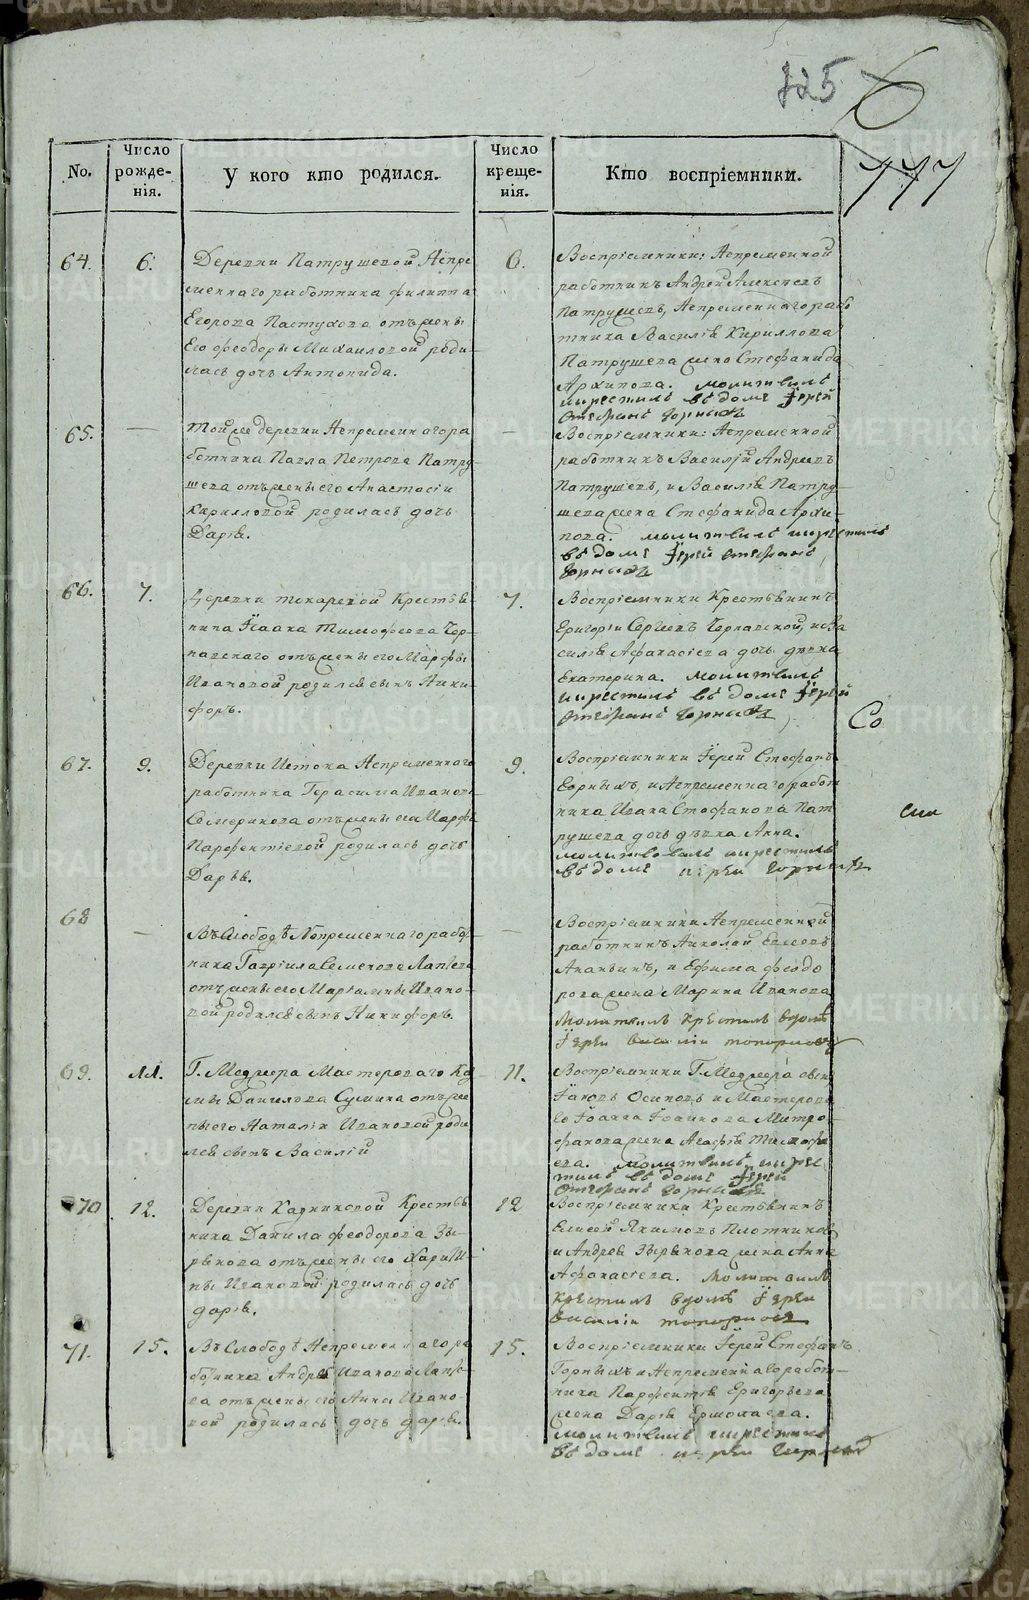 725 6
777
No.
Число рожде-
нія.
У кого кто родился.
Число креще-
нія.
Кто воспріемники.
64. 6.
Деревни Патрушевой Непре
менного работника Филиппа
Егорова Пастухова отъ жены
Его Феодоры Михаиловой роди
лась дочь Антонида.
6.
Воспріемники: Непременной
работникъ Андрей Алексѣевъ
Патрушевъ, Непременнаго рабо
тника Василія Кириллова
Патрушева жена Стефанида
Архипова. молитвилъ
икрестилъ въ доме Іерей
Стефанъ Горныхъ
65. —
Тойже деревни Непременнагора
ботника Павла Петрова Патру-
шева отъ жены его Анастасіи
Кирилловой родилась дочь
Дарія.
—
Воспріемники: Непременной
работникъ Василій Андреевъ
Патрушевъ, и Василія Патру-
шева жена Стефанида Архи-
пова. молитвилъ икрестилъ
въ доме Іерей Стефанъ
Горныхъ
66. 7.
Деревни Токаревой Крестья
нина Исаака Тимофеева Чер-
навскаго отъ жены его Марфы
Ивановой родился сынъ Ники
форъ.
7.
Воспріемники Крестьянинъ
Григорій Сергеевъ Чернавской, и Ва
силія Афанасіева дочь девка
Екатерина. молитвилъ
икрестилъ въ доме Іерей
Стефанъ Горныхъ
Со
67. 9.
Деревни Истока Непременнаго
работника Герасима Иванова
отъ жены его Марфы
Парфентіевой родилась дочь
Дарья.
9.
Воспріемники Іерей Стефанъ
Горныхъ, и Непременнаго работ
ника Ивана Стефанова Пат
рушева дочь девка Анна.
молитвовалъ икрестилъ
въ доме Іерей Горныхъ
68 —
Въ Слободѣ Непременнаго рабо
ника Гавріила Семенова Лаптева
отъ жены его Маріамны Ивано-
вой родился сынъ Никифоръ.
—
Воспріемники Непременной
работникъ Николай Евсеевъ
Ананьинъ, и Ефима Феодо
рова жена Марина Иванова
Молитвилъ крестилъ вдоме
Іерей Василій Топорковъ
69. 11.
Г. Маджера Мастероваго Коз
мы Данилова Сушина отъ же
ны его Наталіи Ивановой роди
лся сынъ Василій
11.
Воспріемники Г. Маджера сынъ
Іаковъ Осиповъ и Мастерова
го Іоанна Іоаннова Митро-
фанова жена Агафія Тимофе
ева. молитвилъ икрес
тилъ въ доме Іерей
Стефанъ Горныхъ
70 12.
Деревни Кадниковой Крестья
нина Данила Феодорова Зы-
рянова отъ жены его Харити
ны Ивановой родилась дочь
Дарія.
12
Воспріемники Крестьянинъ
Елисей Якимовъ Плотников
и Андрея Зырянова жена Анна
Афанасіева. Молитвилъ
крестилъ вдоме Іерей
Василій Топорковъ
71. 15.
Въ Слободѣ Непременнагора
ботника Андрея Иванова Лапте-
ва отъ жены его Анны Ивано-
вой родилась дочь Дарія.
15.
Воспріемники Іерей Стефанъ
Горныхъ и Непременнагоработ-
ника Парфентія Григорьева
жена Дарія Ермолаева.
молитвилъ икрестилъ
въ доме Іерей Горныхъ